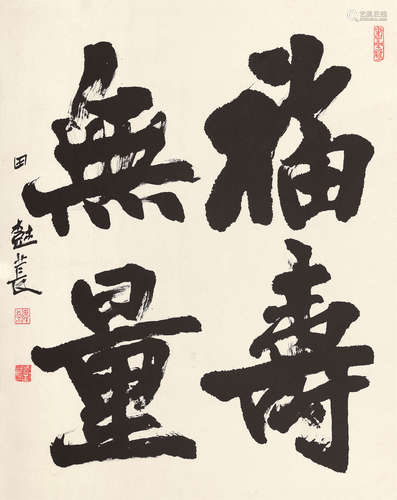 福壽
無量
田